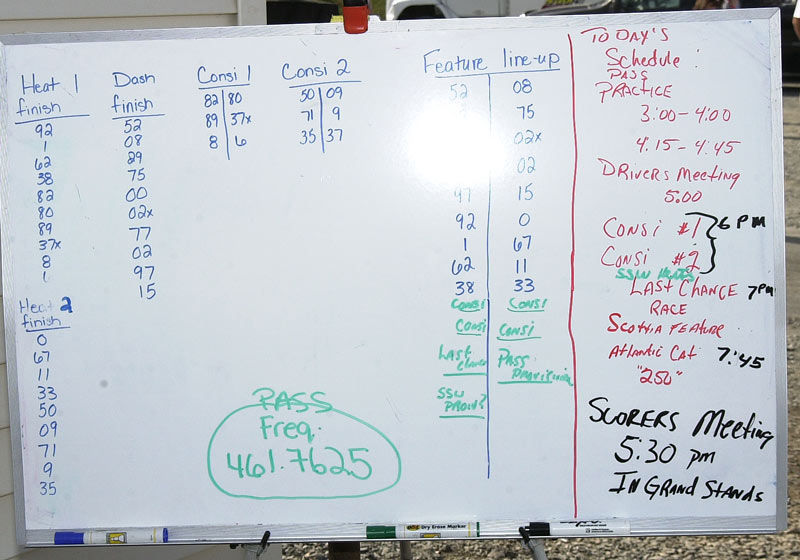 Heat 1
finish
92
1
62
38
82
80
89
37x
8
6
Heat 2
finish
0
67
11
33
50
09
71
9
35
Dash
finish
52
08
29
75
00
02x
77
02
97
15
Consi 1
82 80
89 37x
8 6
Consi 2
50 09
71 9
35 37
Feature line-up
52 08
75
02x
02
97 15
92 0
1 67
62 11
38 33
Consi Consi
Consi Consi
Last Chance
Pass Provisional
SSW
PASS
Freq.
461.7625
TO DAY'S
Schedule :
PASS
PRACTICE
3:00-4:00
4:15-4:45
DRIVERS MEETING
5:00
CONSI #1
CONSI #2
6 PM
SSW HEATS
LAST CHANCE 7pm
RACE
SCOTIA FEATURE
ATLANTIC CAT 7:45
"250"
SCORERS Meeting
5:30 pm
IN GRAND STANDS
Dry Erase Marker